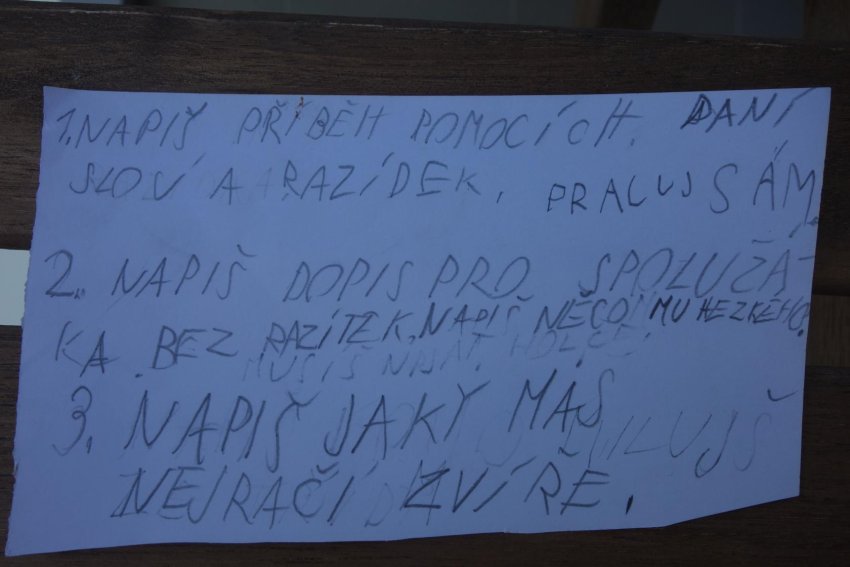 1. NAPIŠ PŘÍBĚH POMOCÍCH. DANÍ
SLOVÍ A RAZÍDEK. PRACUJ SÁM.
2. NAPIŠ DOPIS PRO SPOLUŽÁ-
KA. BEZ RAZÍTEK. NAPIŠ NĚCO MU HEZKÉHO.
MUSÍŠ NAPSAT HOLCE.
3. NAPIŠ JAKÝ MÁŠ
NEJRAČÍ ZVÍŘE.